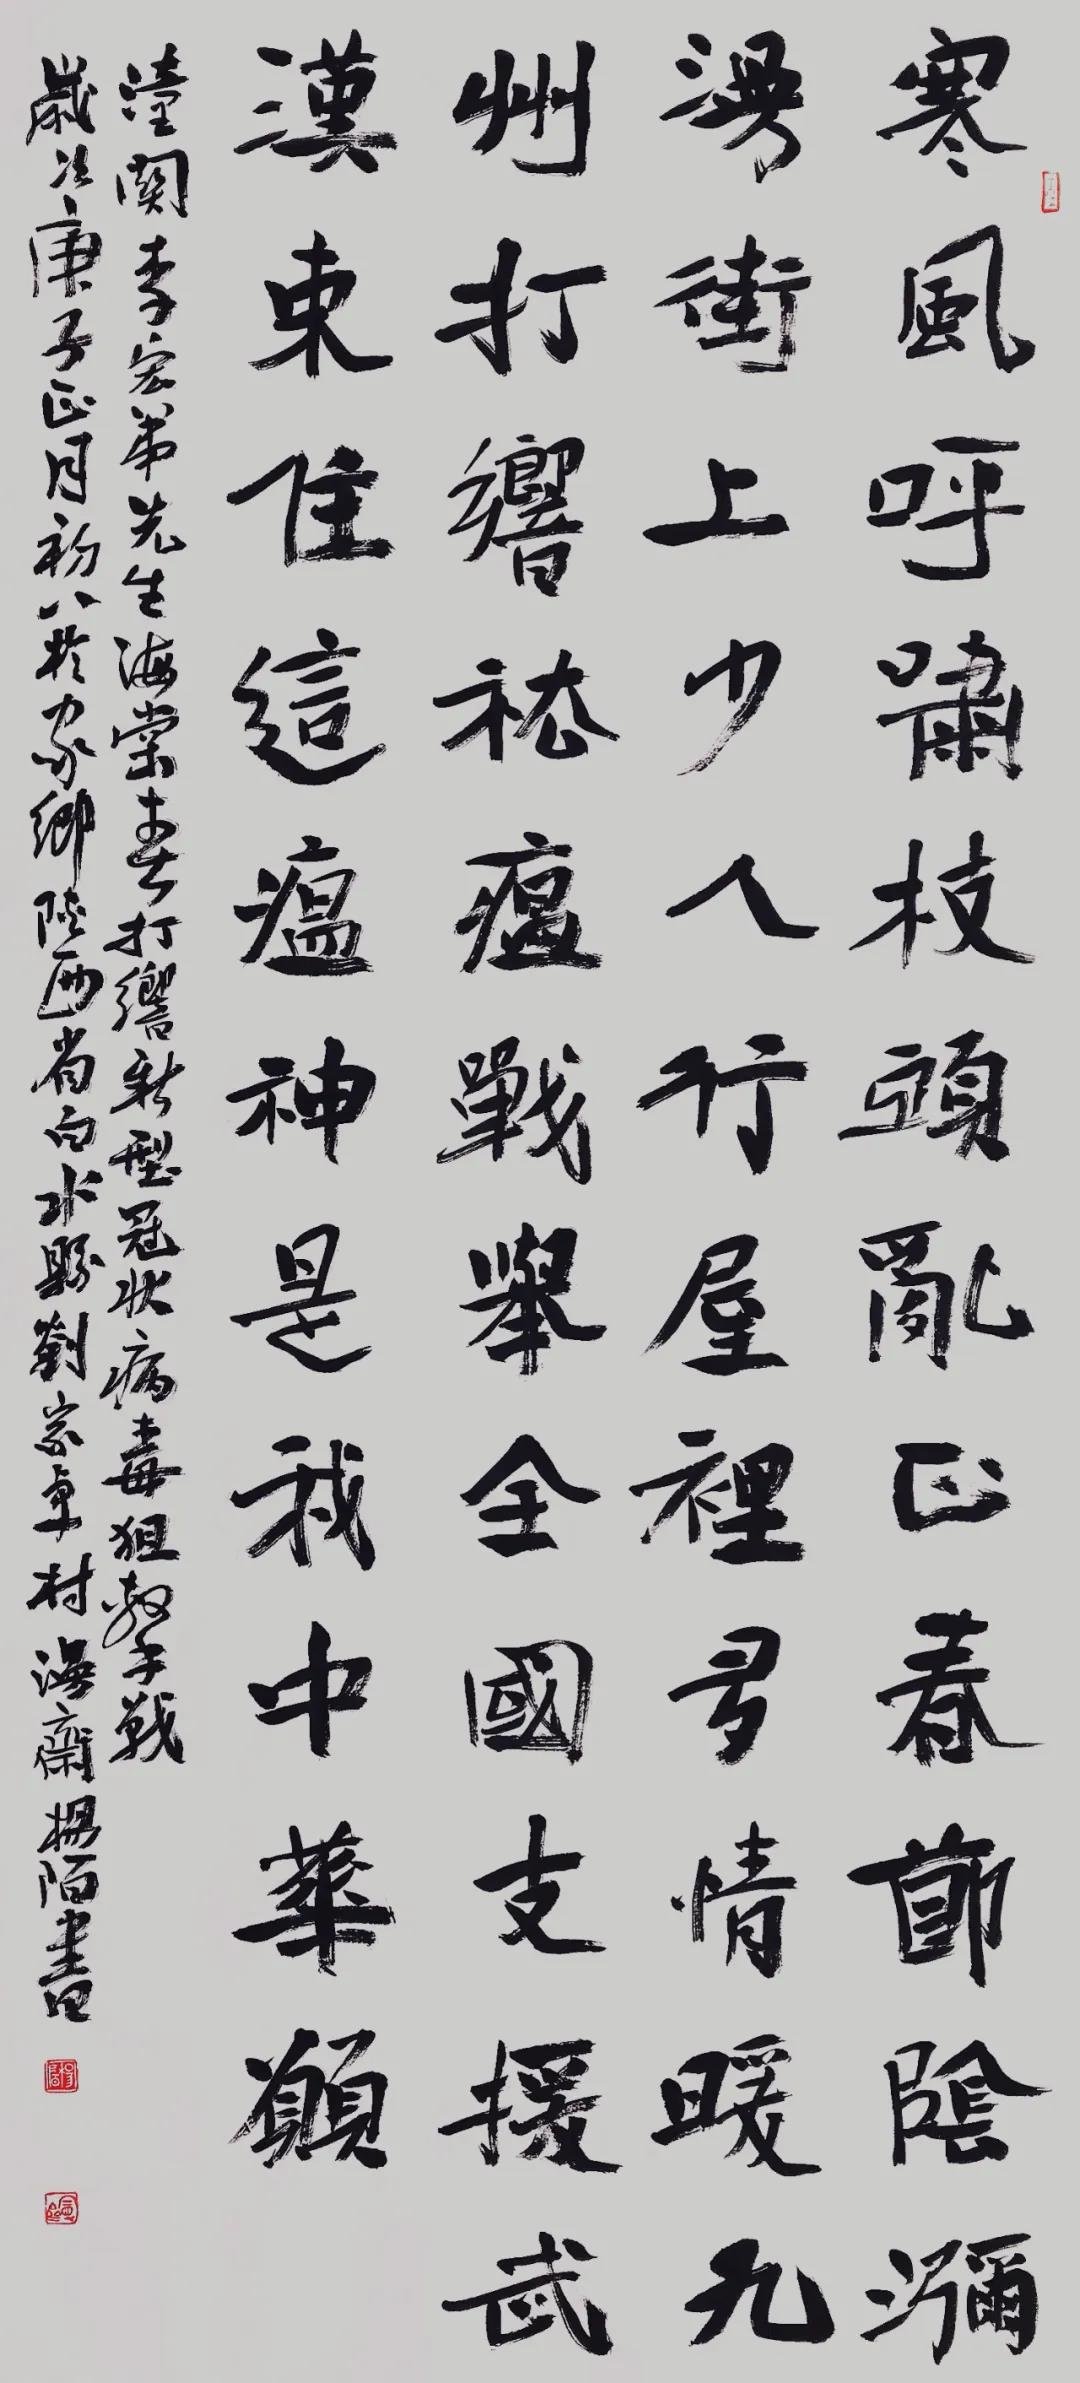 寒風呼嘯枝頭亂正春節陰瀰
漫街上少人行屋裡多情暖九
州打響祛瘟戰舉全國支援武
漢束住這瘟神是我中華願
潼關李宏弟先生海棠春打響新型冠狀病毒狙擊戰
歲次庚子正月初八於家鄉陝西省白水縣劉家卓村海齋楊陌書